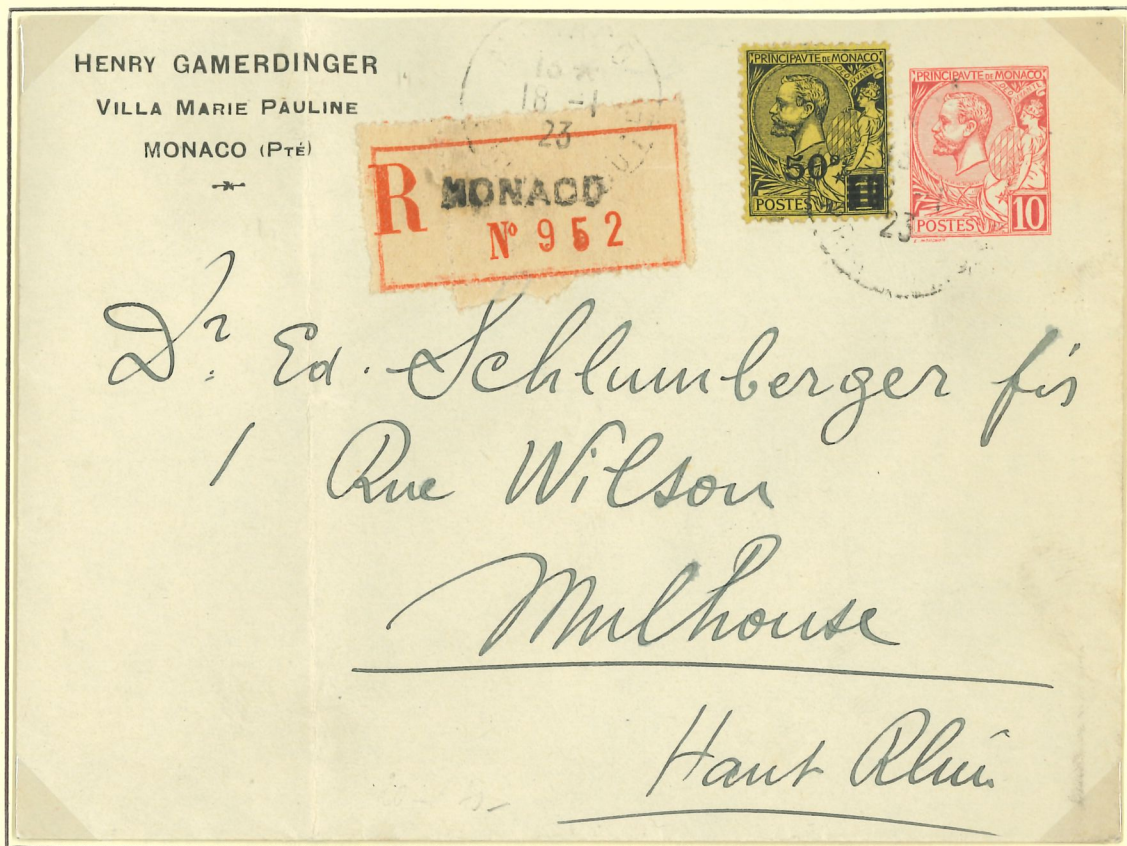 HENRY GAMERDINGER
VILLA MARIE PAULINE
MONACO (PTÉ)
18 -1
23
R MONACO
Nº 952
PRINCIPAVTE DE MONACO
50c
POSTES
PRINCIPAVTE DE MONACO
POSTES 10
23
Dr. Ed. Schlumberger fis
1 Rue Wilson
Mulhouse
Haut Rhin